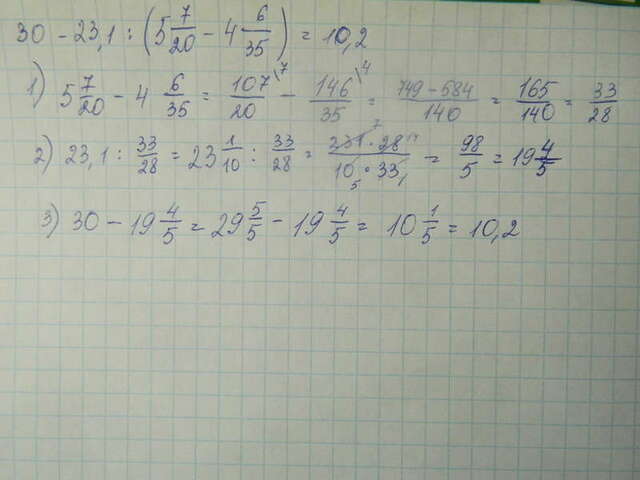 30 - 23,1 : (5 7/20 - 4 6/35) = 10,2
1) 5 7/20 - 4 6/35 = 107/20 \7 - 146/35 \4 = 749-584/140 = 165/140 = 33/28
2) 23,1 : 33/28 = 23 1/10 : 33/28 = 231 7 · 28 14/10 5 · 33 1 = 98/5 = 19 4/5
3) 30 - 19 4/5 = 29 5/5 - 19 4/5 = 10 1/5 = 10,2